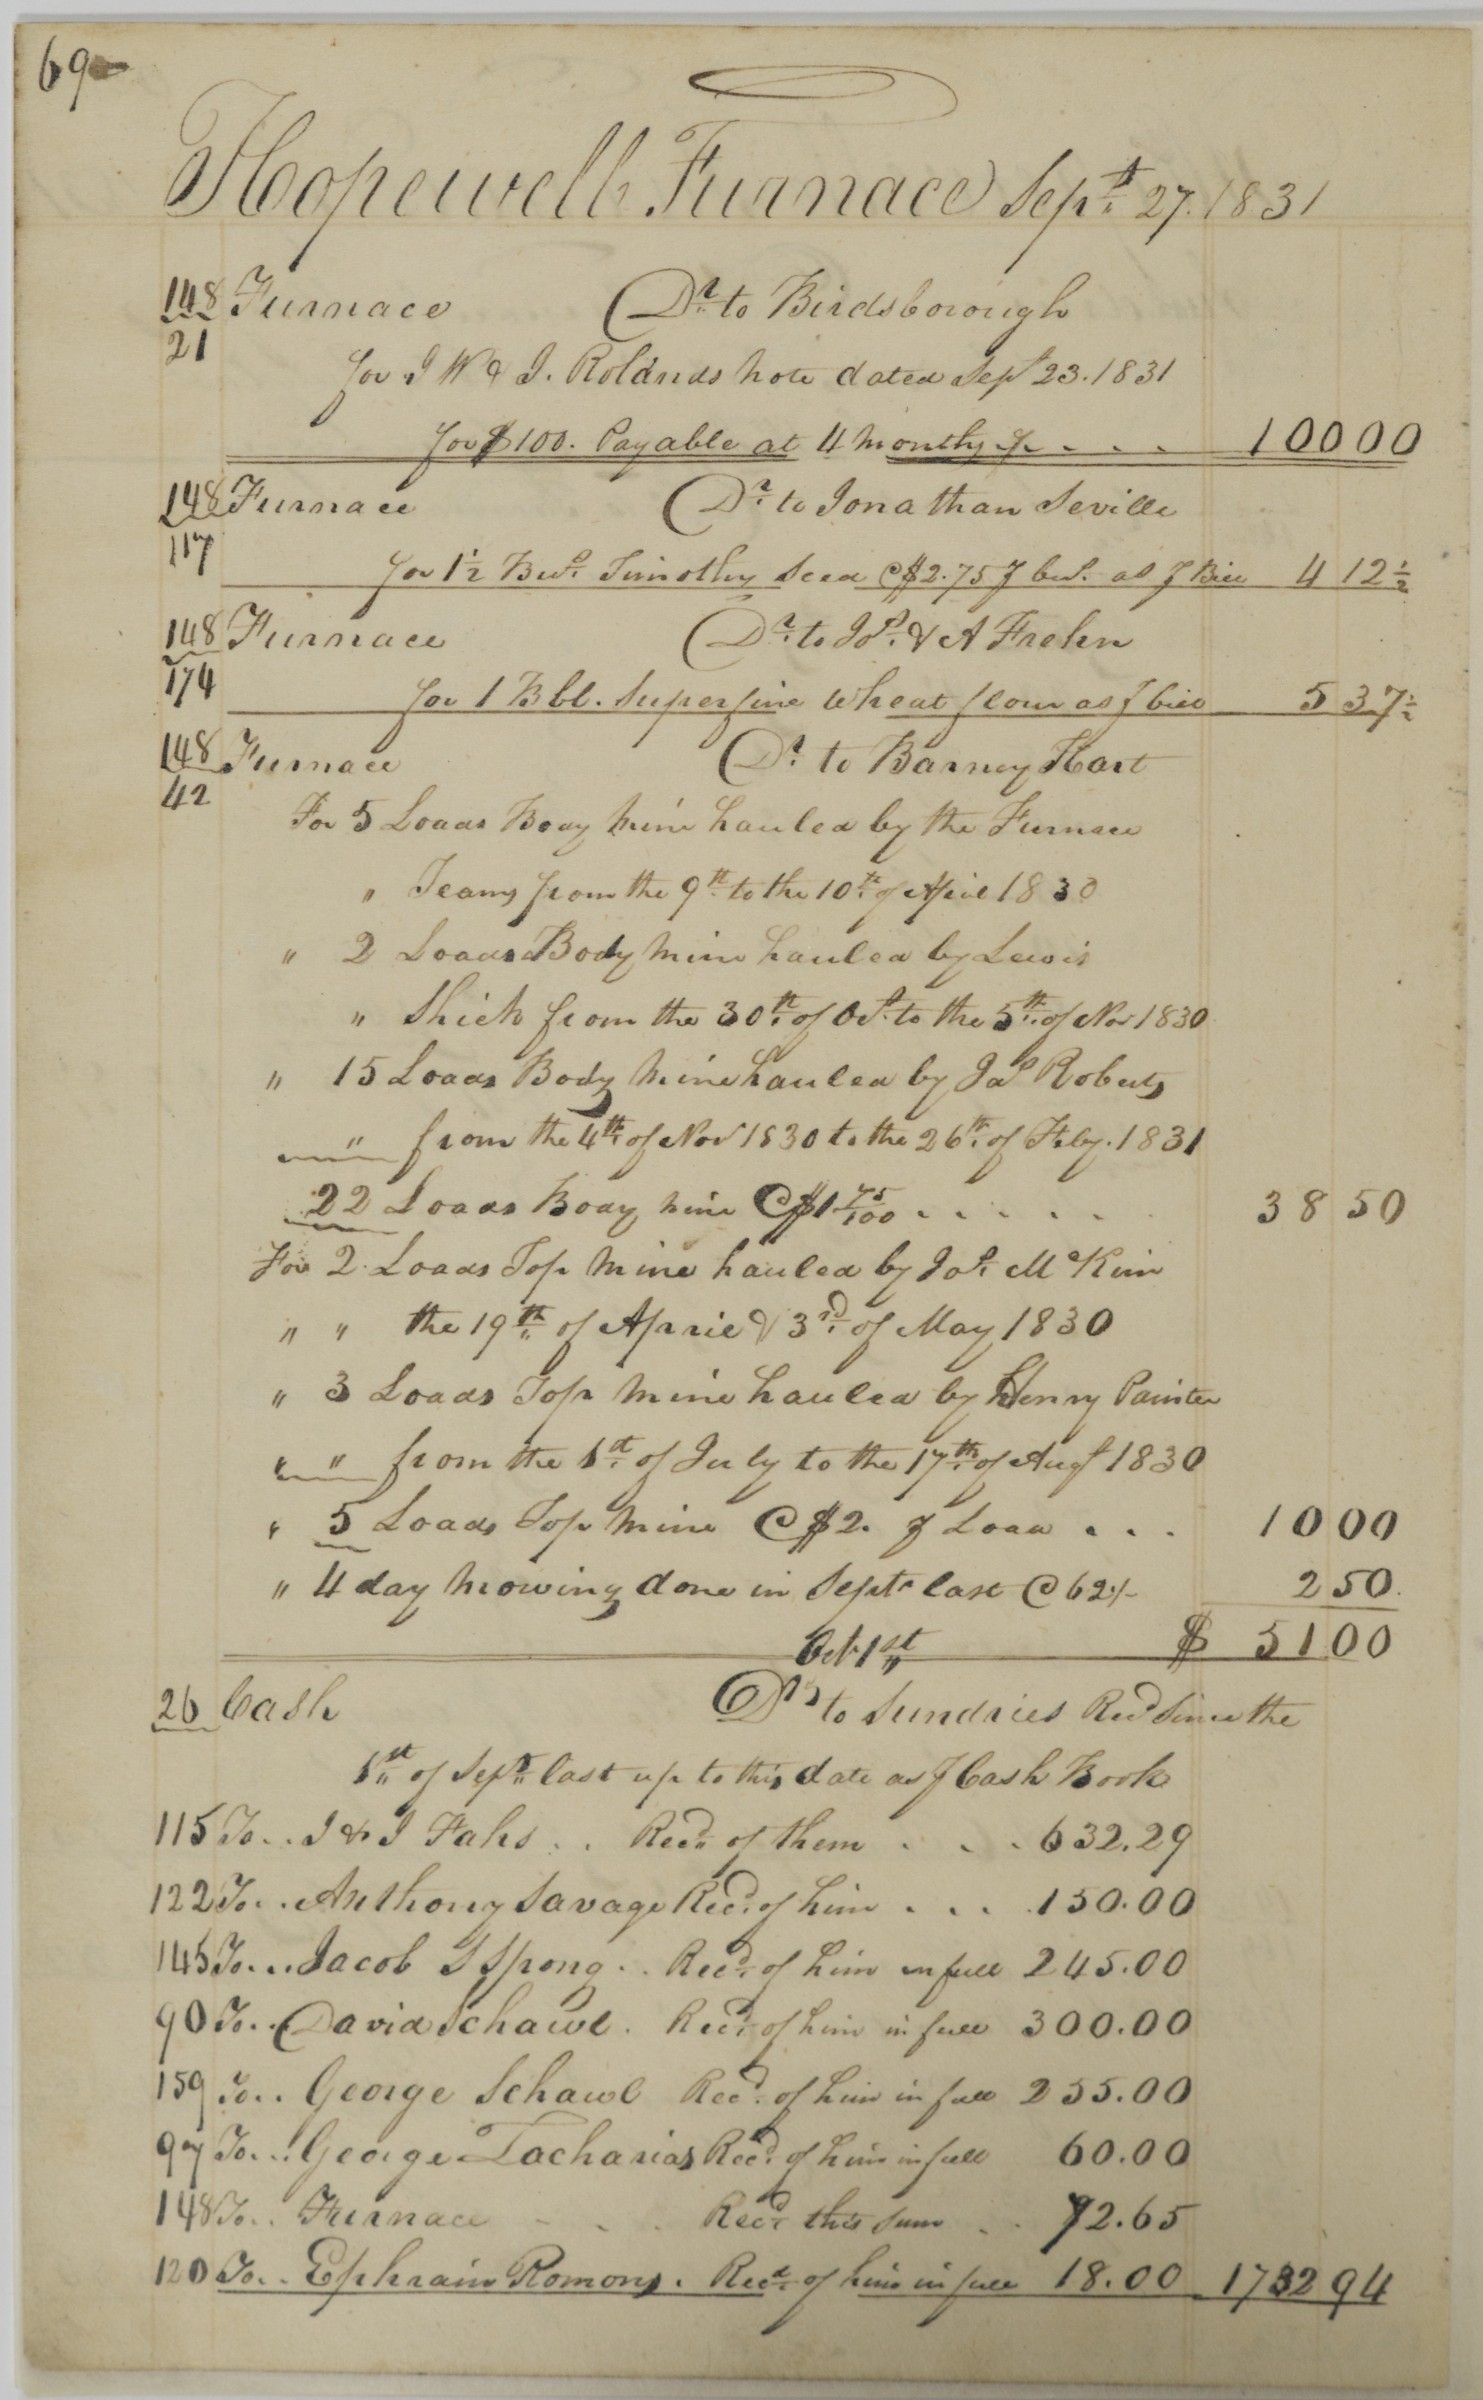 69
Hopewell Furnace Sept. 27. 1831
148 Furnace Dr. to Birdsborough
21
for J W & J. Rolands note dated Sept 23. 1831
for $100. Payable at 4 months &. . . . . 100 00
148 Furnace Dr. to Jonathan Seville
117
for 1½ Bus. Timothy Seed @ $2.75 ⅌ bus. as ⅌ Bill 4 12½
148 Furnace Dr. to Jos. & A Frehn
174
for 1 Bbl. Superfine Wheat flour as ⅌ bill 5 37½
148 Furnace Dr. to Barney Hart
42
For 5 Loads Body Mine hauled by the Furnace
" Teams from the 9th to the 10th of April 1830
" 2 Loads Body Mine hauled by Lewis
" Shick from the 30th of Oct. to the 5th of Nov 1830
" 15 Loads Body Mine hauled by Jas Roberts
" from the 4th of Nov 1830 to the 26th of Feby. 1831
22 Loads Body Mine @ $1 75/100 . . . . . 38 50
For 2 Loads Top Mine hauled by Jos. McKim
" " the 19th of April & 3rd of May 1830
" 3 Loads Top Mine hauled by Henry Painter
" " from the 1st of July to the 17th of Augt 1830
" 5 Loads Top Mine @ $2. ⅌ Load . . . 10 00
" 4 day Mowing done in Sept. last @ 62½ 2 50
$ 51 00
Oct. 1st
26 Cash Drs to Sundries Recd Since the
1st of Sept last up to this date as ⅌ Cash Book
115 To . . J & J Fahs . . Recd. of them . . . 632.29
122 To . . Anthony Savage Recd. of him . . . 150.00
145 To . . Jacob S Spong . . Recd. of him in full 245.00
90 To . . David Schawl . Recd. of him in full 300.00
159 To . . George Schawl Recd. of him in full 255.00
97 To . . George Zacharias Recd. of him in full 60.00
148 To . . Furnace . . . Recd. this sum . . 72.65
120 To . . Ephraim Romons . Recd. of him in full 18.00 1732 94